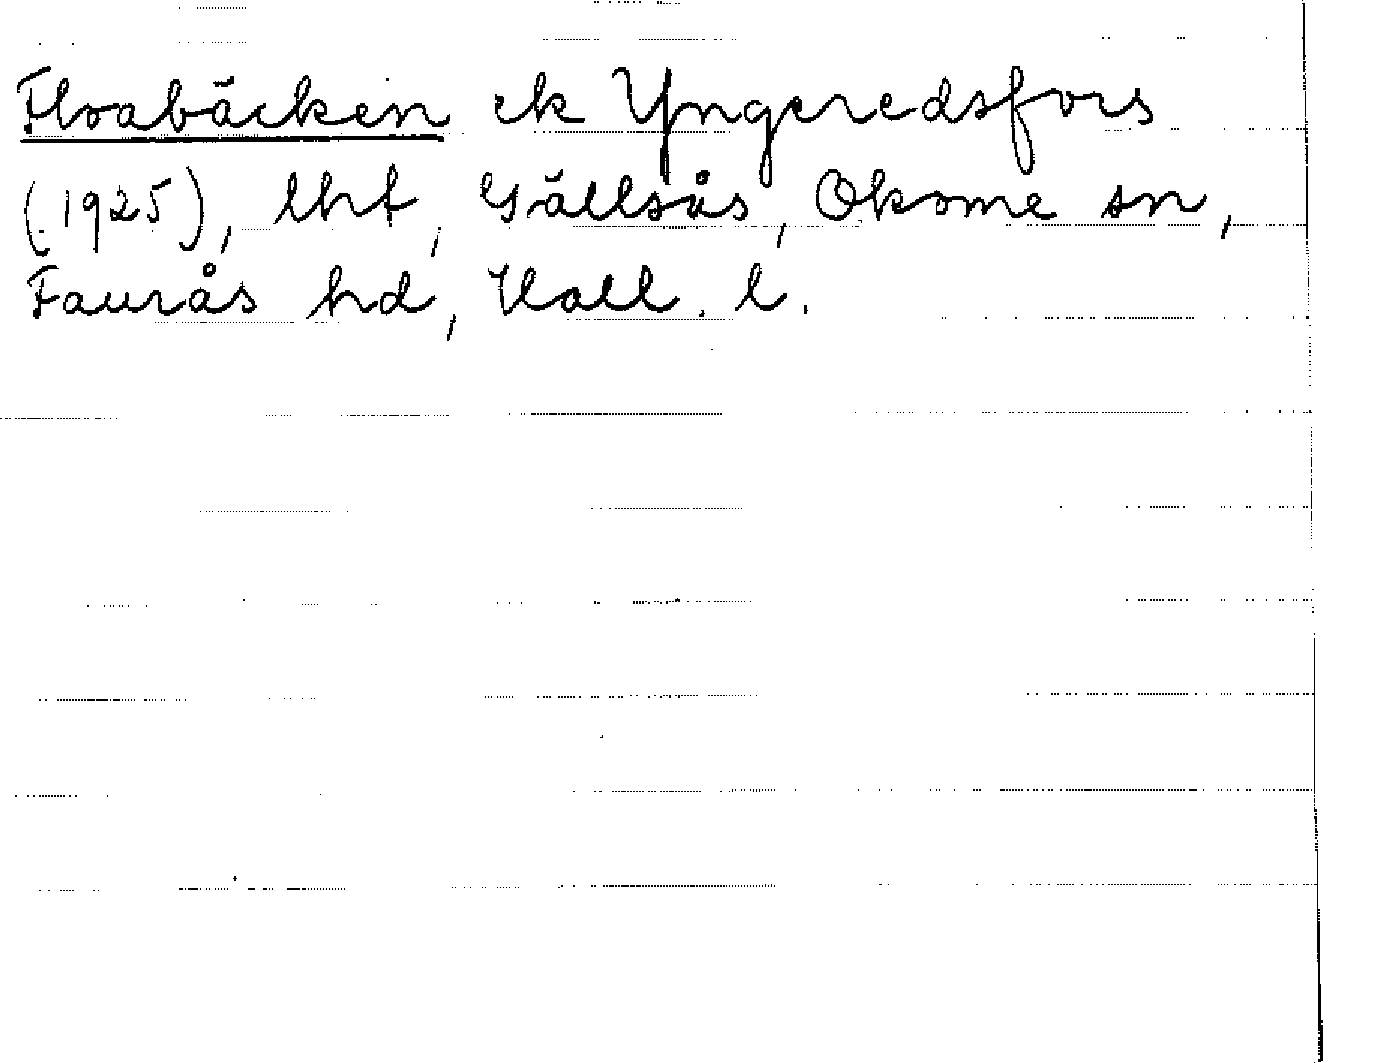 Floabäcken ek Yngeredsfors
(1925), lht, Gällsås, Okome sn,
Faurås hd, Hall. l.